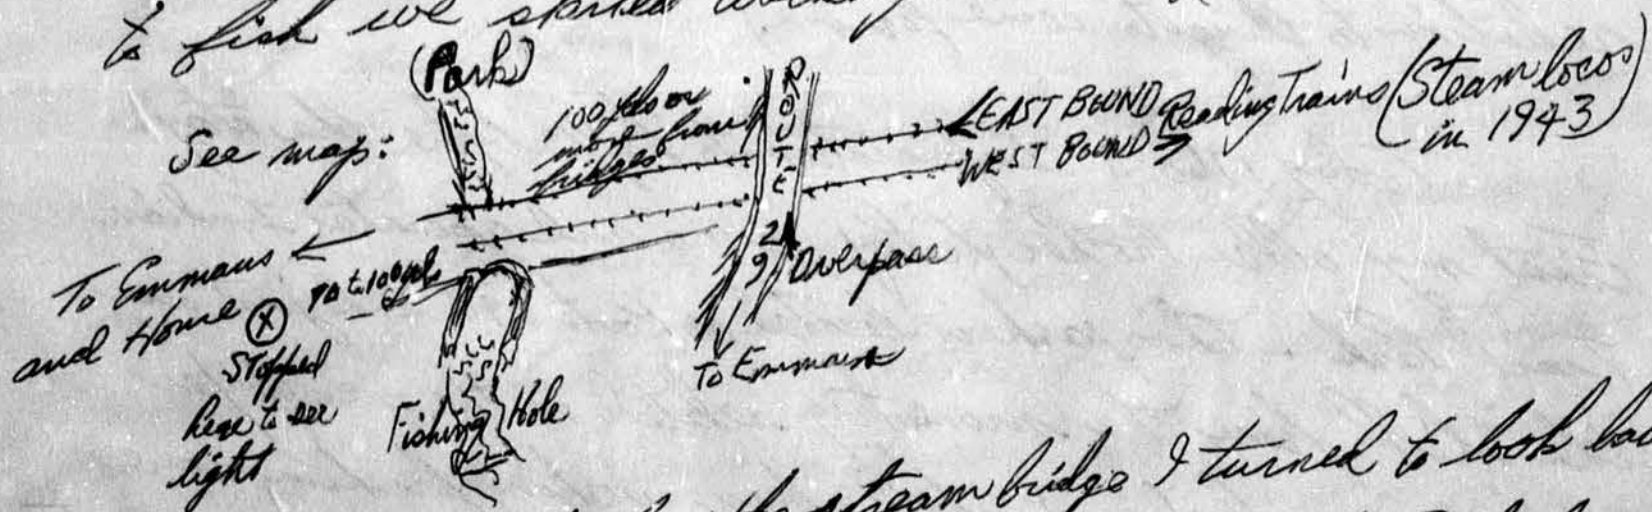 to fish we started
(Park)
See map:
100 yds or
more from
bridges
ROUTE
29
Overpass
EAST BOUND
WEST BOUND
Reading Trains (Steam locos)
in 1943
To Emmaus
and Home
X
70 to 100 yds
Stopped
here to see
light
Fishing Hole
To Emmaus
stream bridge I turned to look